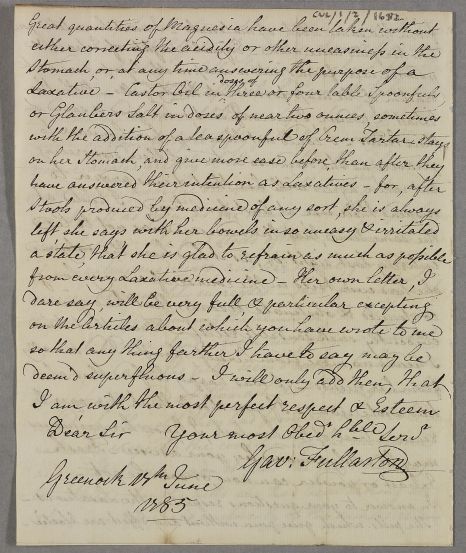 CUL/1/2/1682
Great quantities of Magnesia have been taken without
either correcting the acidity or other uneasiness in the
Stomach, or at any time answering the purpose of a
Laxative – Castor Oil in doses of three or four table Spoonfuls
or Glaubers Salt in doses of near two ounces, sometimes
with the addition of a tea spoonful of Crem Tartar, stays
on her Stomach, and give more ease before than after they
have answered their intention as Laxatives – for, after
Stools produced by medicine of any sort, she is always
left she says with her bowels in so uneasy & irritated
a state, that she is glad to refrain as much as possible
from every Laxative medicine – Her own letter, I
dare say, will be very full & particular excepting
on the Articles about which you have wrote to me
so that any thing farther I have to say may be
deem'd superfluous – I will only add then, that
I am with the most perfect respect & Esteem
Dear Sir Your most Obedt hble Servt
Gav: Fullarton
Greenock June
1785